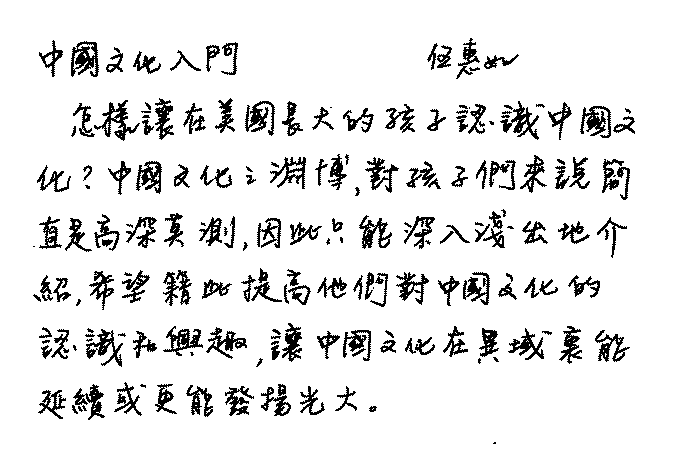 中國文化入門 伍惠如
怎樣讓在美國長大的孩子認識中國文
化?中國文化之淵博,對孩子們來說簡
直是高深莫測,因此只能深入淺出地介
紹,希望籍此提高他們對中國文化的
認識和興趣,讓中國文化在異域裏能
延續或更能發揚光大。